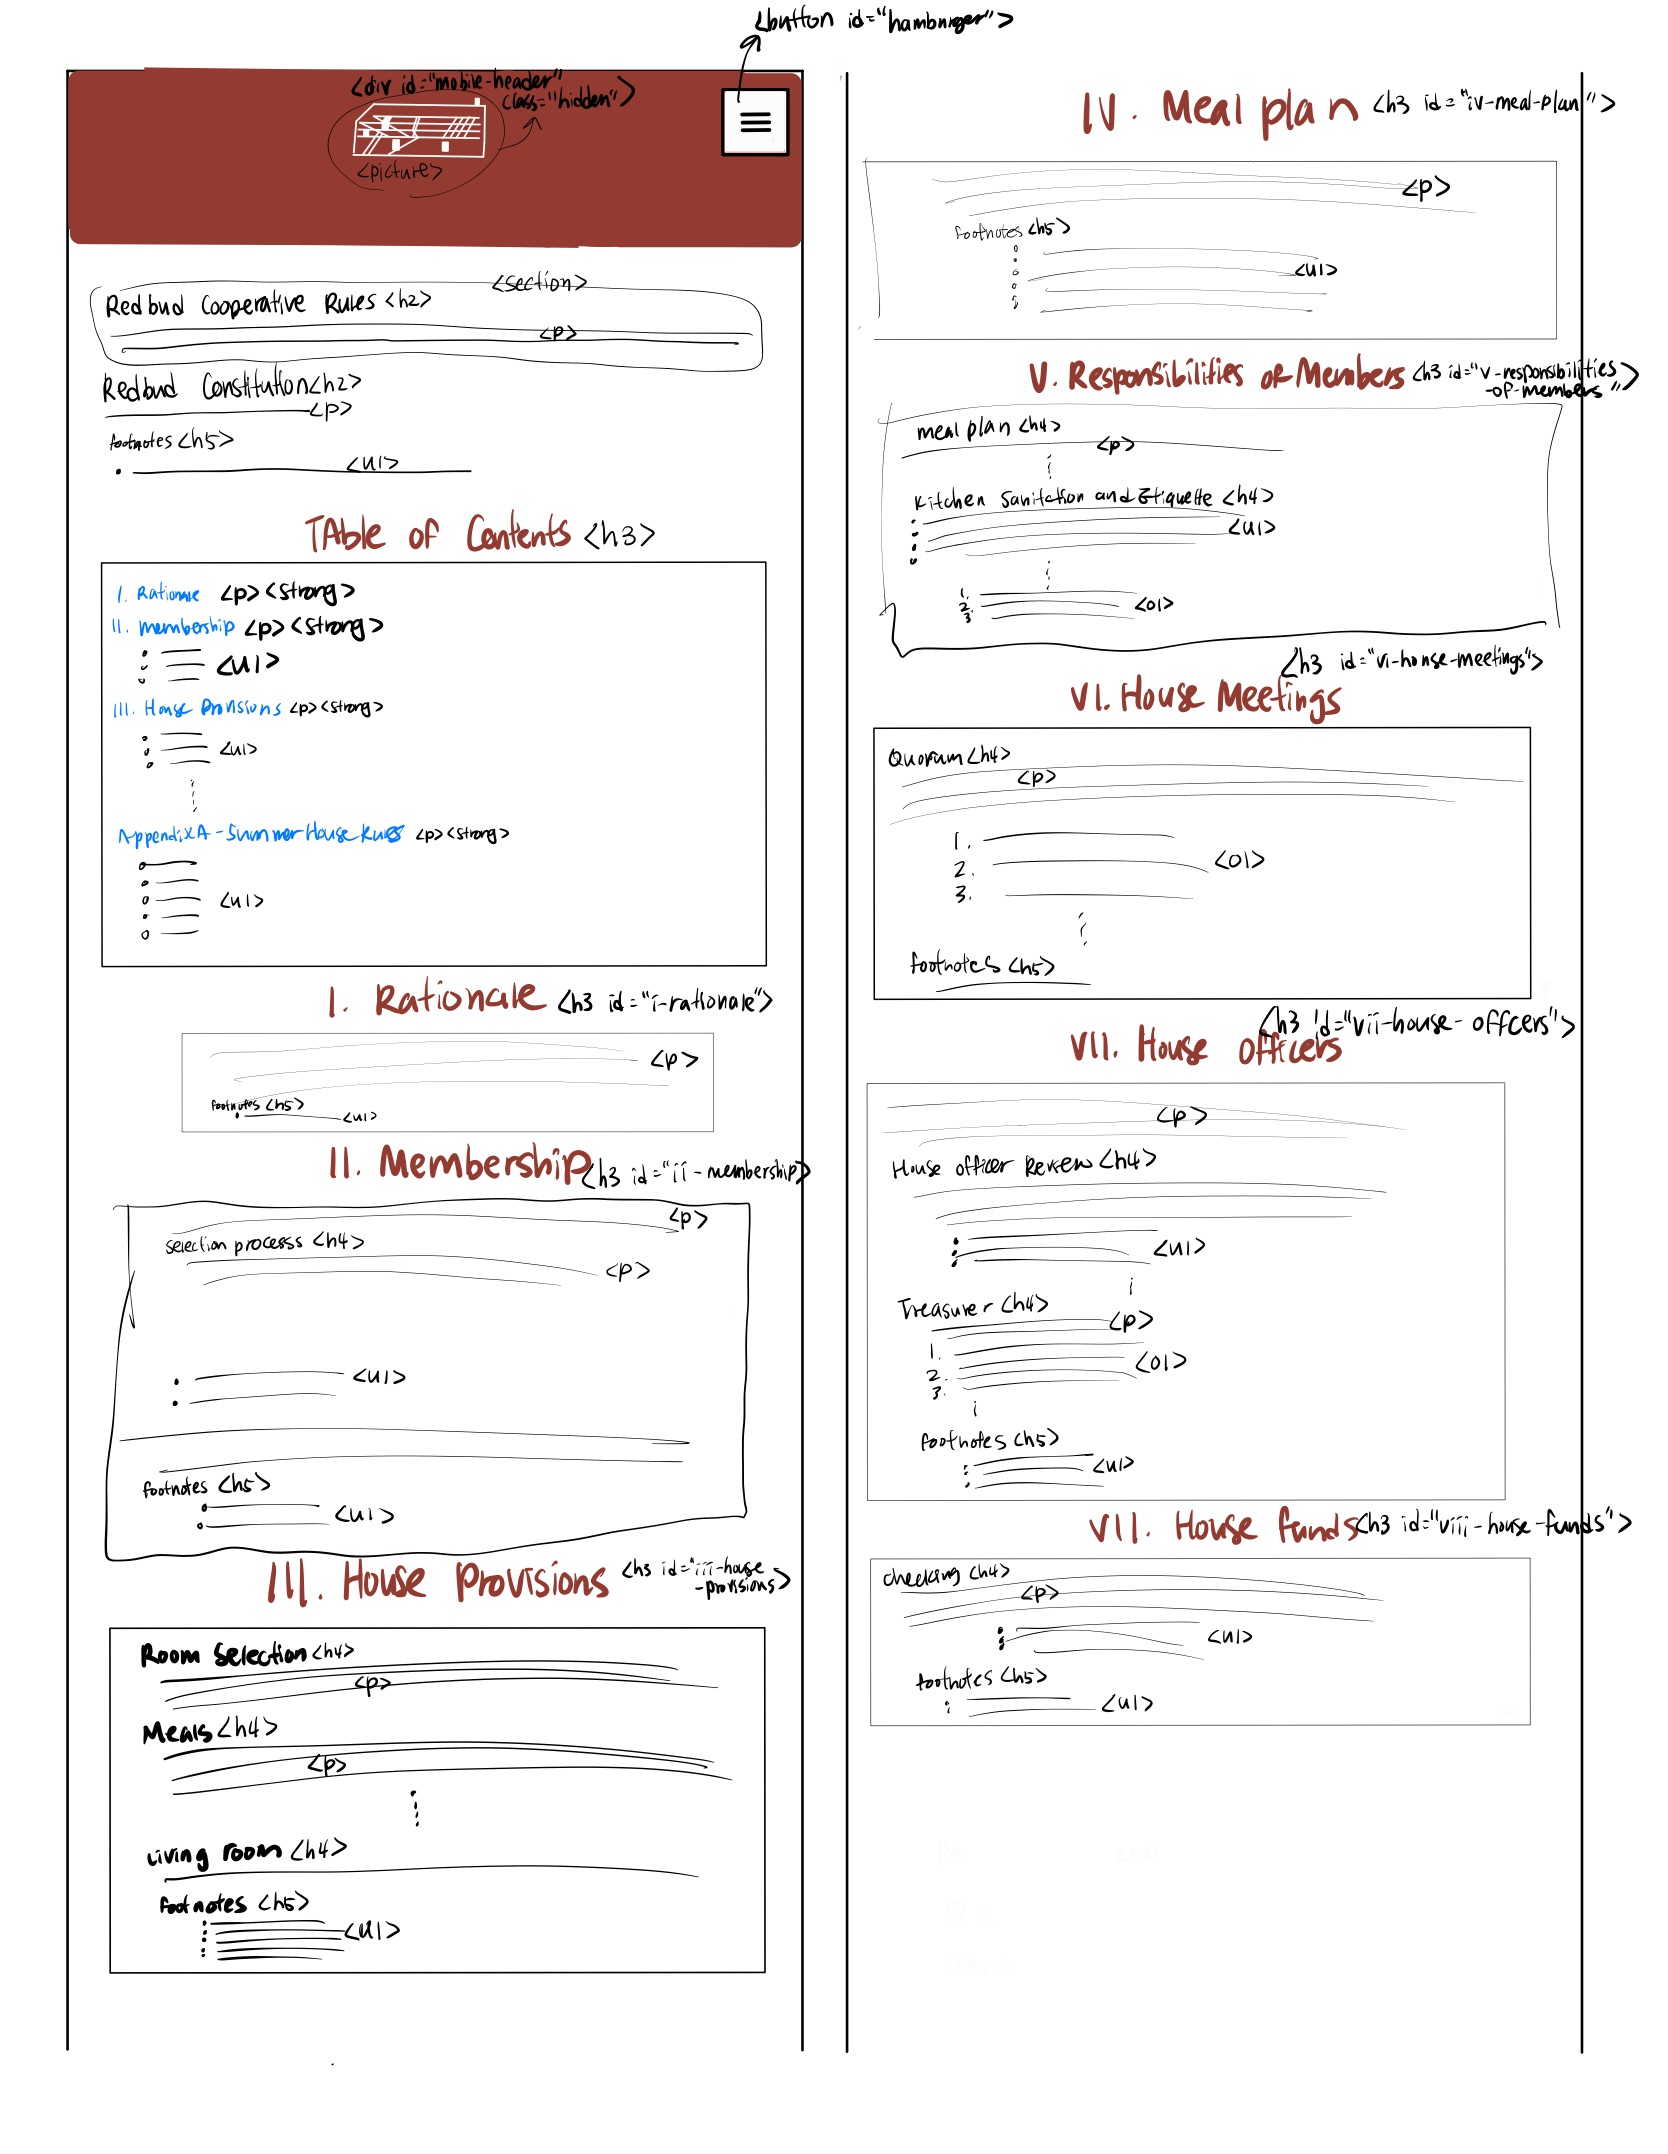 <button id="hamburger">
<div id="mobile-header"
class="hidden">
<picture>
<section>
Redbud Cooperative Rules <h2>
<p>
Redbud Constitution <h2>
<p>
footnotes <h5>
<ul>
TAble of Contents <h3>
I. Rationale <p><strong>
II. membership <p><strong>
<ul>
III. House Provisions <p><strong>
<ul>
AppendixA - Summer House Rules <p><strong>
<ul>
I. Rationale <h3 id="i-rationale">
<p>
footnotes <h5>
<ul>
II. Membership <h3 id="ii-membership>
<p>
selection process <h4>
<p>
<ul>
footnotes <h5>
<ul>
III. House Provisions <h3 id="iii-house
-provisions>
Room Selection <h4>
<p>
Meals <h4>
<p>
Living room <h4>
footnotes <h5>
<ul>
IV. Meal plan <h3 id="iv-meal-plan">
<p>
footnotes <h5>
<ul>
V. Responsibilities of Members <h3 id="v-responsibilities
-of-members">
meal plan <h4>
<p>
Kitchen Sanitation and Etiquette <h4>
<ul>
1.
2.
3
<ol>
<h3 id="vi-house-meetings">
VI. House Meetings
Quorum <h4>
<p>
1.
2.
3.
<ol>
footnotes <h5>
<h3 id="vii-house-offcers">
VII. House officers
<p>
House officer Review <h4>
<ul>
Treasurer <h4>
<p>
1.
2.
3.
<ol>
footnotes <h5>
<ul>
VII. House funds <h3 id="viii-house-funds">
checking <h4>
<p>
<ul>
footnotes <h5>
<ul>